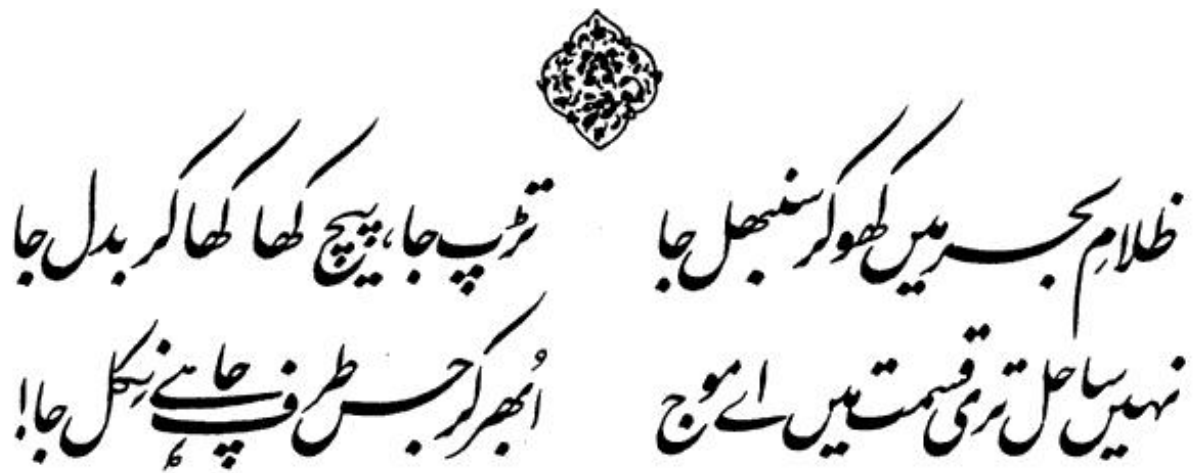 ظلامِ بحر میں کھو کر سنبھل جا
تڑپ جا، پیچ کھا کھا کر بدل جا
نہیں ساحل تری قسمت میں اے موج
اُبھر کر جس طرف چاہے نِکل جا!